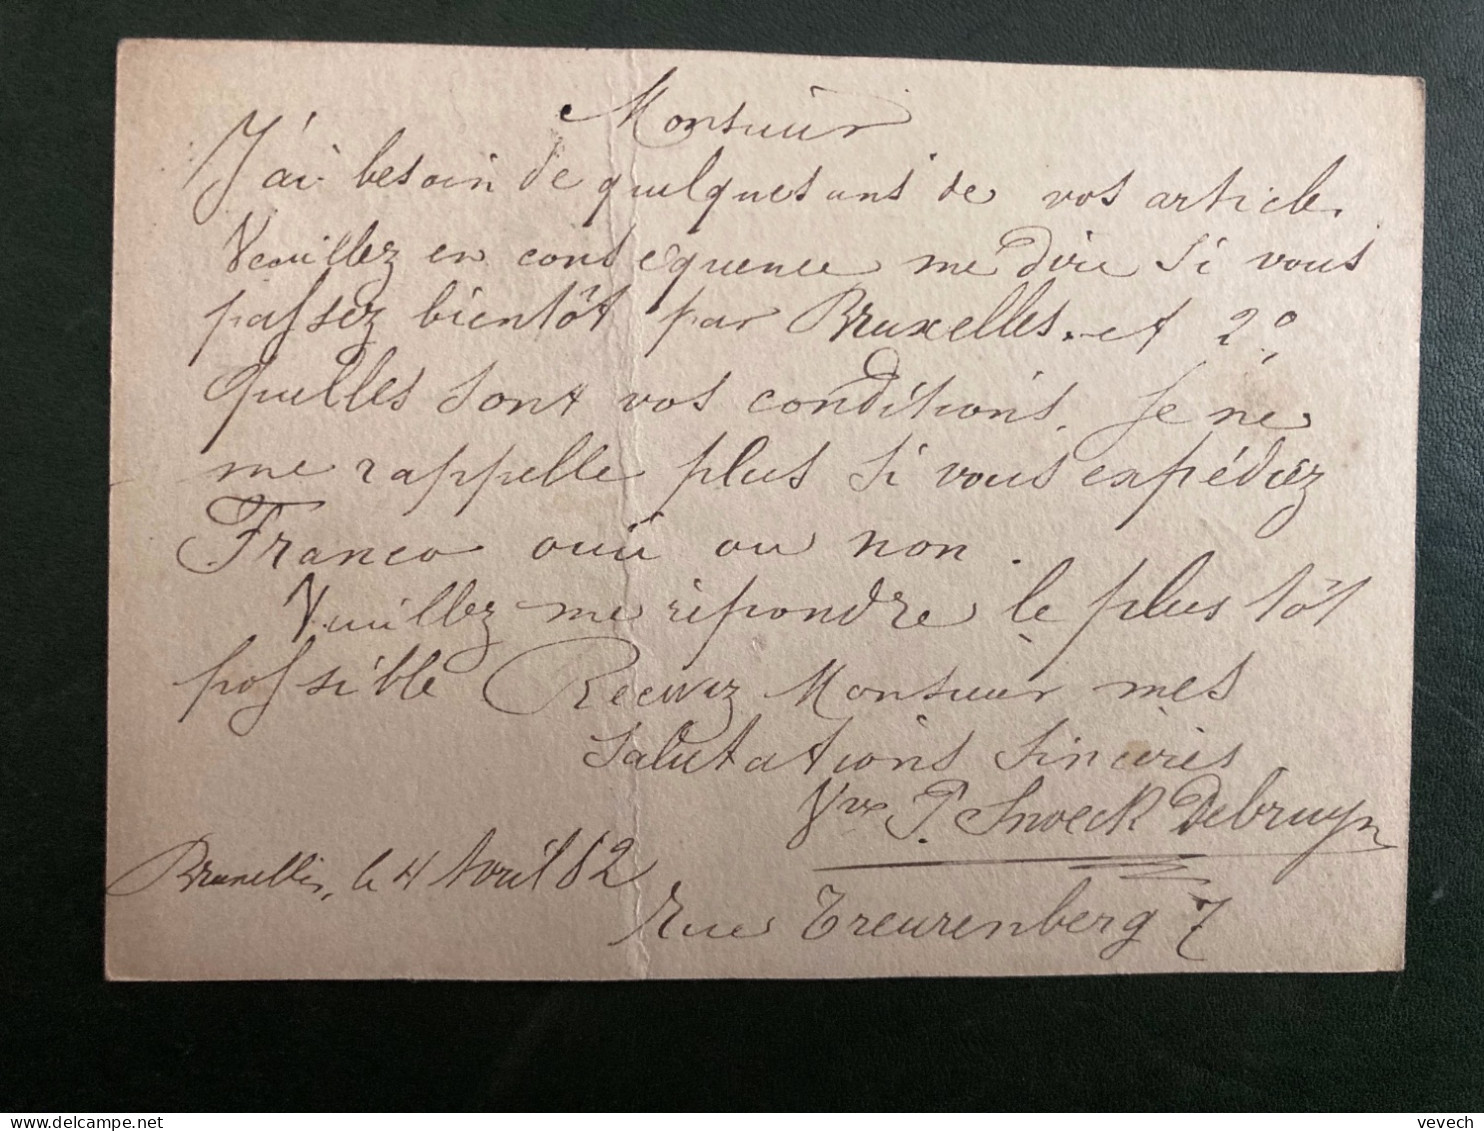 Monsieur
J'ai besoin de quelques uns de vos article.
Veuillez en conséquence me dire si vous
passez bientôt par Bruxelles. et 2°
quelles sont vos conditions. Je ne
me rappelle plus si vous expédiez
Franco oui ou non.
Veuillez me répondre le plus tôt
possible Recevez Monsieur mes
salutations sincères
Vve P. Snoeck Debruyn
Bruxelles, le 4 Avril 82
Rue Treurenberg 7
vevech